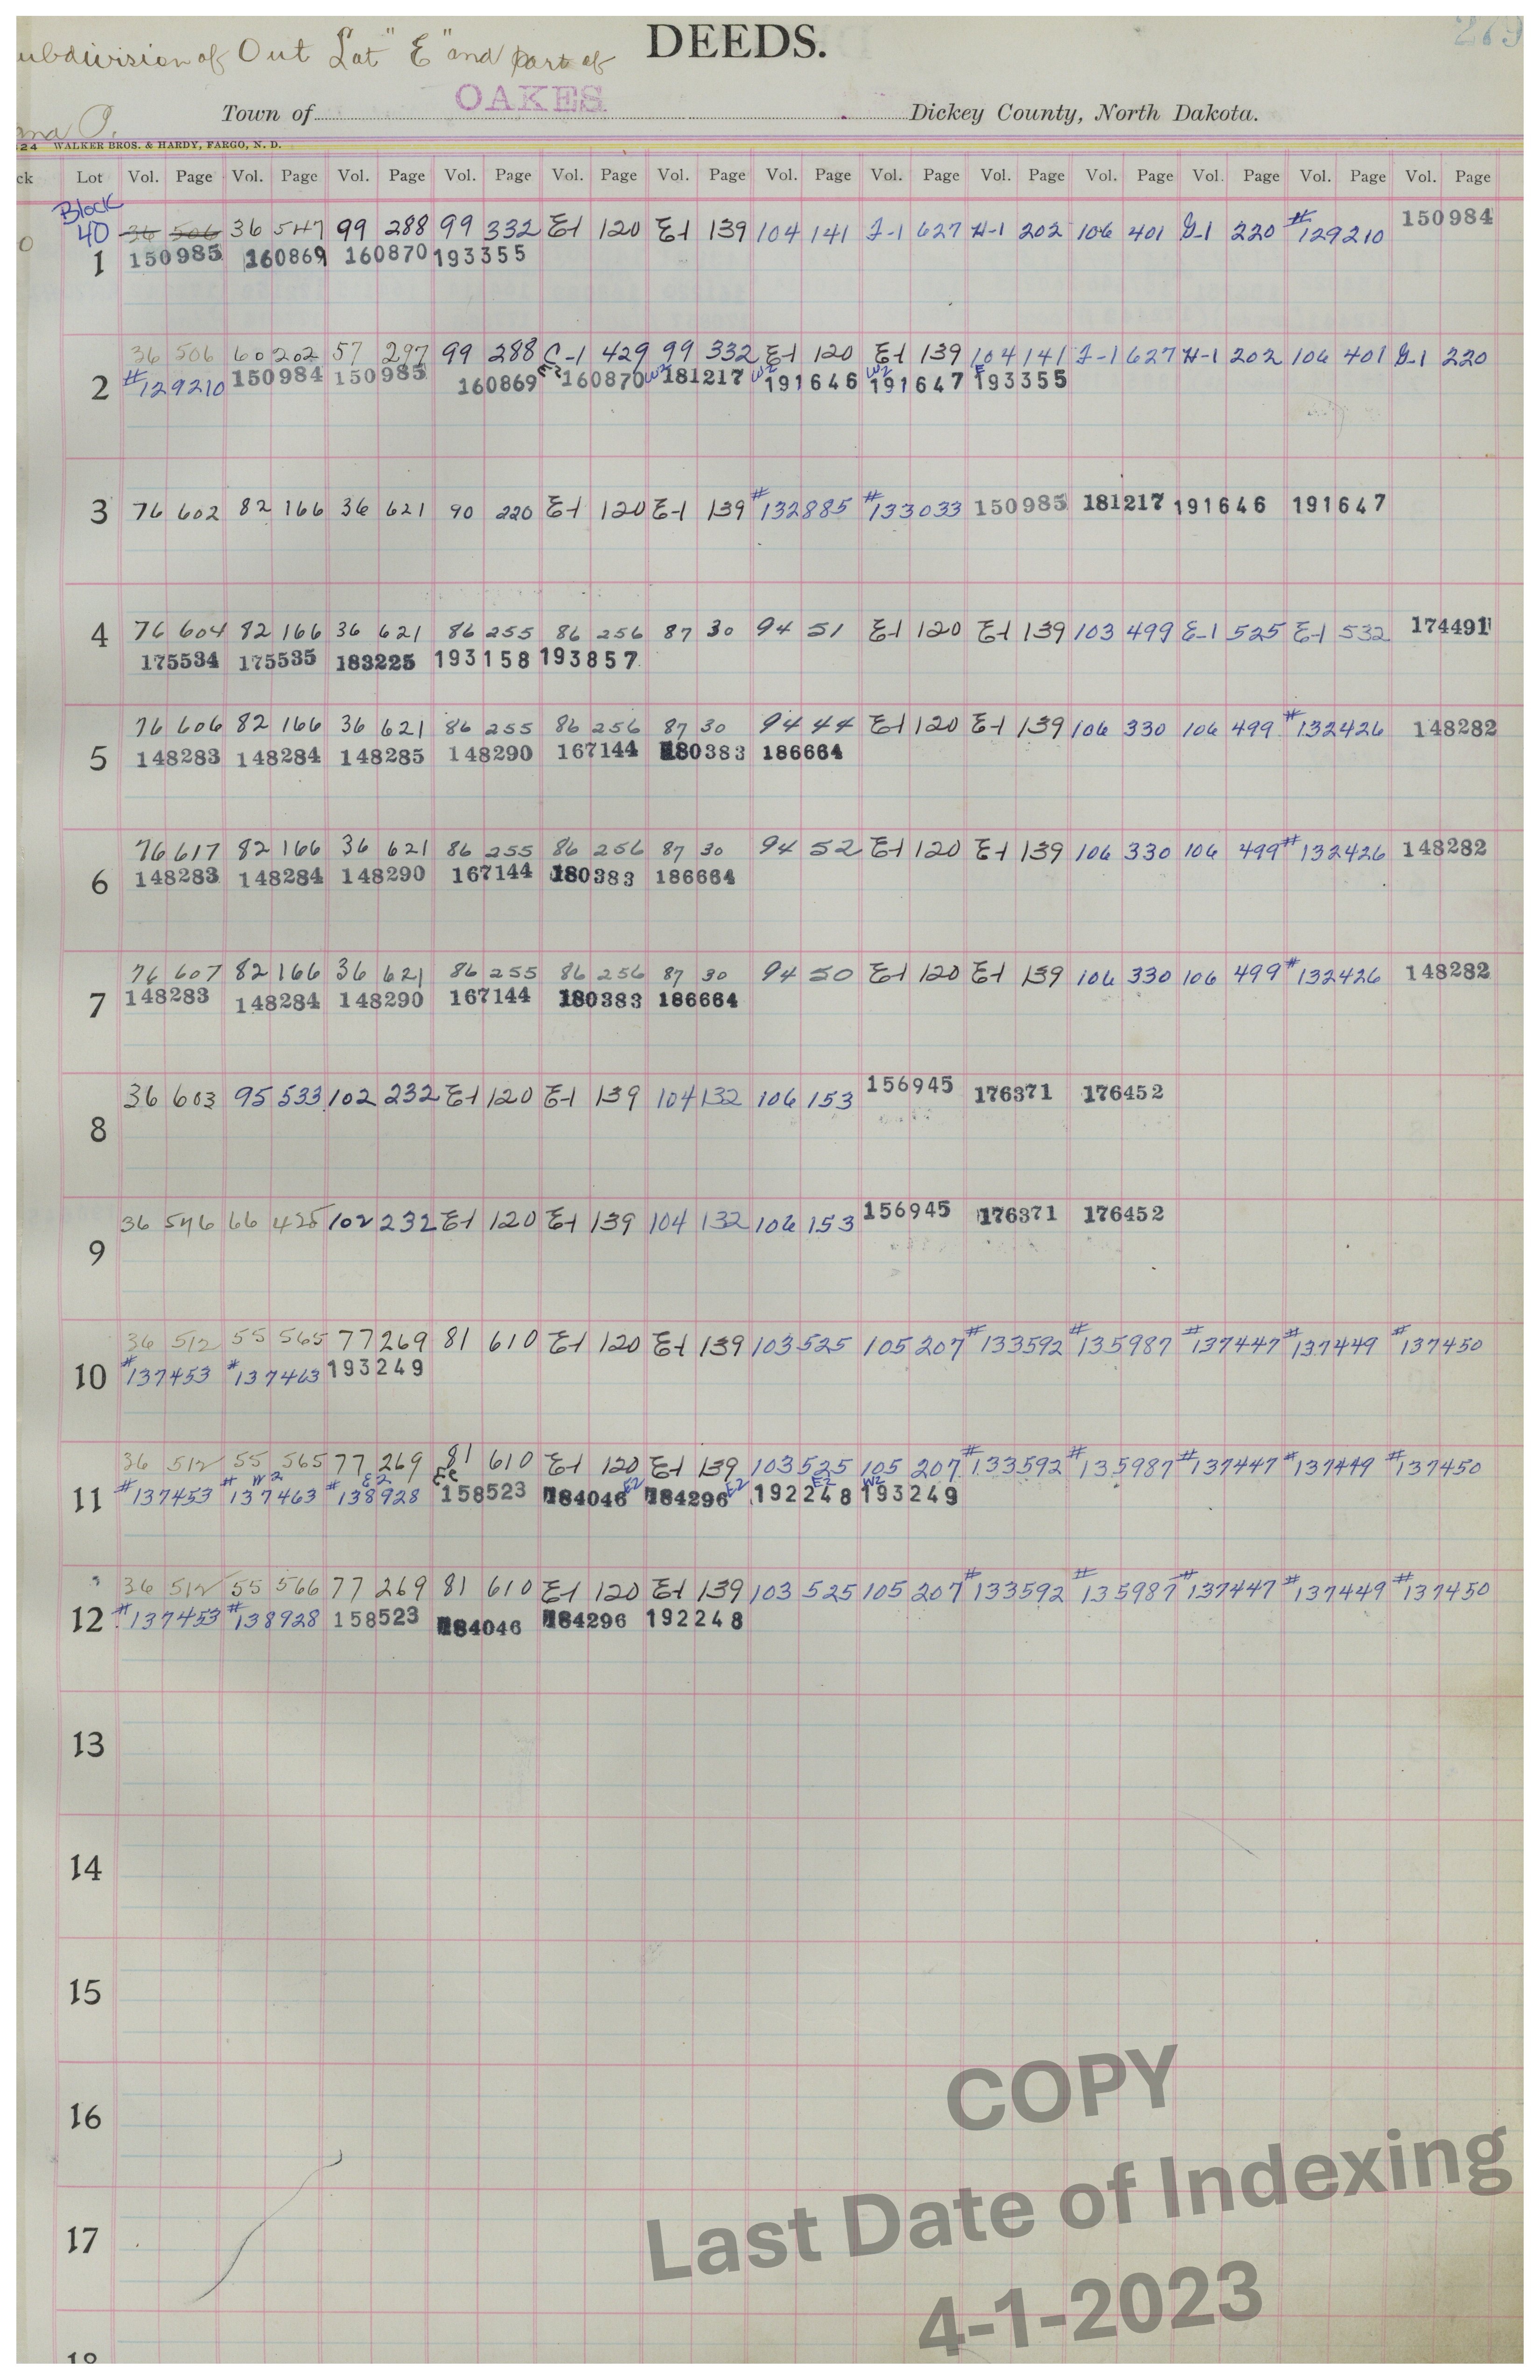 279
DEEDS.
ubdivision of Out Lot "E" and part of
Town of OAKES Dickey County, North Dakota.
24 WALKER BROS. & HARDY, FARGO, N. D.
ck Lot Vol. Page Vol. Page Vol. Page Vol. Page Vol. Page Vol. Page Vol. Page Vol. Page Vol. Page Vol. Page Vol. Page Vol. Page Vol. Page
Block
40 36 506 36 547 99 288 99 332 E-1 120 E-1 139 104 141 J-1 627 H-1 202 106 401 G-1 220 #129210 150984
1 150985 160869 160870 193355
36 506 60 202 57 297 99 288 C-1 429 99 332 E-1 120 E-1 139 104 141 J-1 627 H-1 202 106 401 G-1 220
2 #129210 150984 150985 160869 160870 W2 181217 W2 191646 W2 191647 E 193355
3 76 602 82 166 36 621 90 220 E-1 120 E-1 139 #132885 #133033 150985 181217 191646 191647
4 76 604 82 166 36 621 86 255 86 256 87 30 94 51 E-1 120 E-1 139 103 499 E-1 525 E-1 532 174491
175534 175535 183225 193158 193857
76 606 82 166 36 621 86 255 86 256 87 30 94 44 E-1 120 E-1 139 106 330 106 499 #132426 148282
5 148283 148284 148285 148290 167144 180383 186664
76 617 82 166 36 621 86 255 86 256 87 30 94 52 E-1 120 E-1 139 106 330 106 499 #132426 148282
6 148283 148284 148290 167144 180383 186664
76 607 82 166 36 621 86 255 86 256 87 30 94 50 E-1 120 E-1 139 106 330 106 499 #132426 148282
7 148283 148284 148290 167144 180383 186664
36 603 95 533 102 232 E-1 120 E-1 139 104 132 106 153 156945 176371 176452
8
36 546 66 425 102 232 E-1 120 E-1 139 104 132 106 153 156945 176371 176452
9
36 512 55 565 77 269 81 610 E-1 120 E-1 139 103 525 105 207 #133592 #135987 #137447 #137449 #137450
10 #137453 #137463 193249
36 512 55 565 77 269 81 610 E-1 120 E-1 139 103 525 105 207 #133592 #135987 #137447 #137449 #137450
11 #137453 #137463 W2 #138928 E2 158523 184046 E2 184296 E2 192248 E2 193249 W2
36 512 55 566 77 269 81 610 E-1 120 E-1 139 103 525 105 207 #133592 #135987 #137447 #137449 #137450
12 #137453 #138928 158523 184046 184296 192248
13
14
15
16
17
18
COPY
Last Date of Indexing
4-1-2023